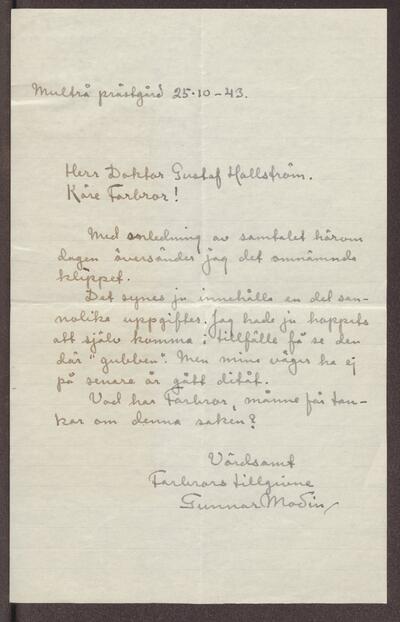 Multrå prästgård 25.10-43.
Herr Doktor Gustaf Hallström.
Käre Farbror!
Med anledning av samtalet härom
dagen översänder jag det omnämnda
klippet.
Det synes ju innehålla en del san-
nolika uppgifter. Jag hade ju hoppats
att själv komma i tillfälle få se den
där "gubben". Men mina vägar ha ej
på senare år gått ditåt.
Vad har Farbror, månne för tan-
kar om denna saken?
Vördsamt
Farbrors tillgivne
Gunnar Modin